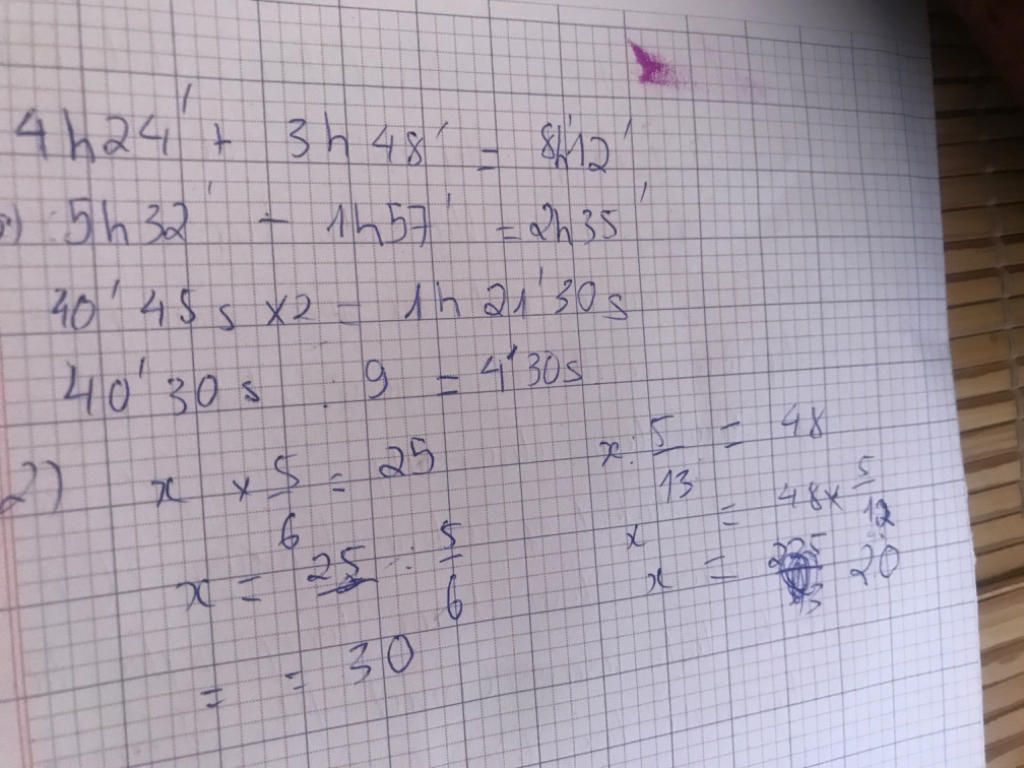 4h24' + 3h48' = 8h12'
5h32' - 1h57' = 2h35'
40'45s x2 = 1h21'30s
40'30s : 9 = 4'30s
2) x × 5/6 = 25 x : 5/13 = 48
x = 25 : 5/6 x = 48 × 5/12
= = 30 x = 20